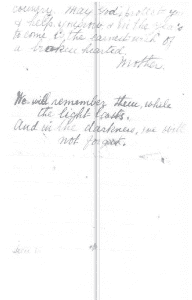 country May God protect you
& help you now, & in the years
to come is the earnest wish of
a broken hearted
Mother.
We will remember them, while
the light lasts.
And in the darkness, we will
not forget.